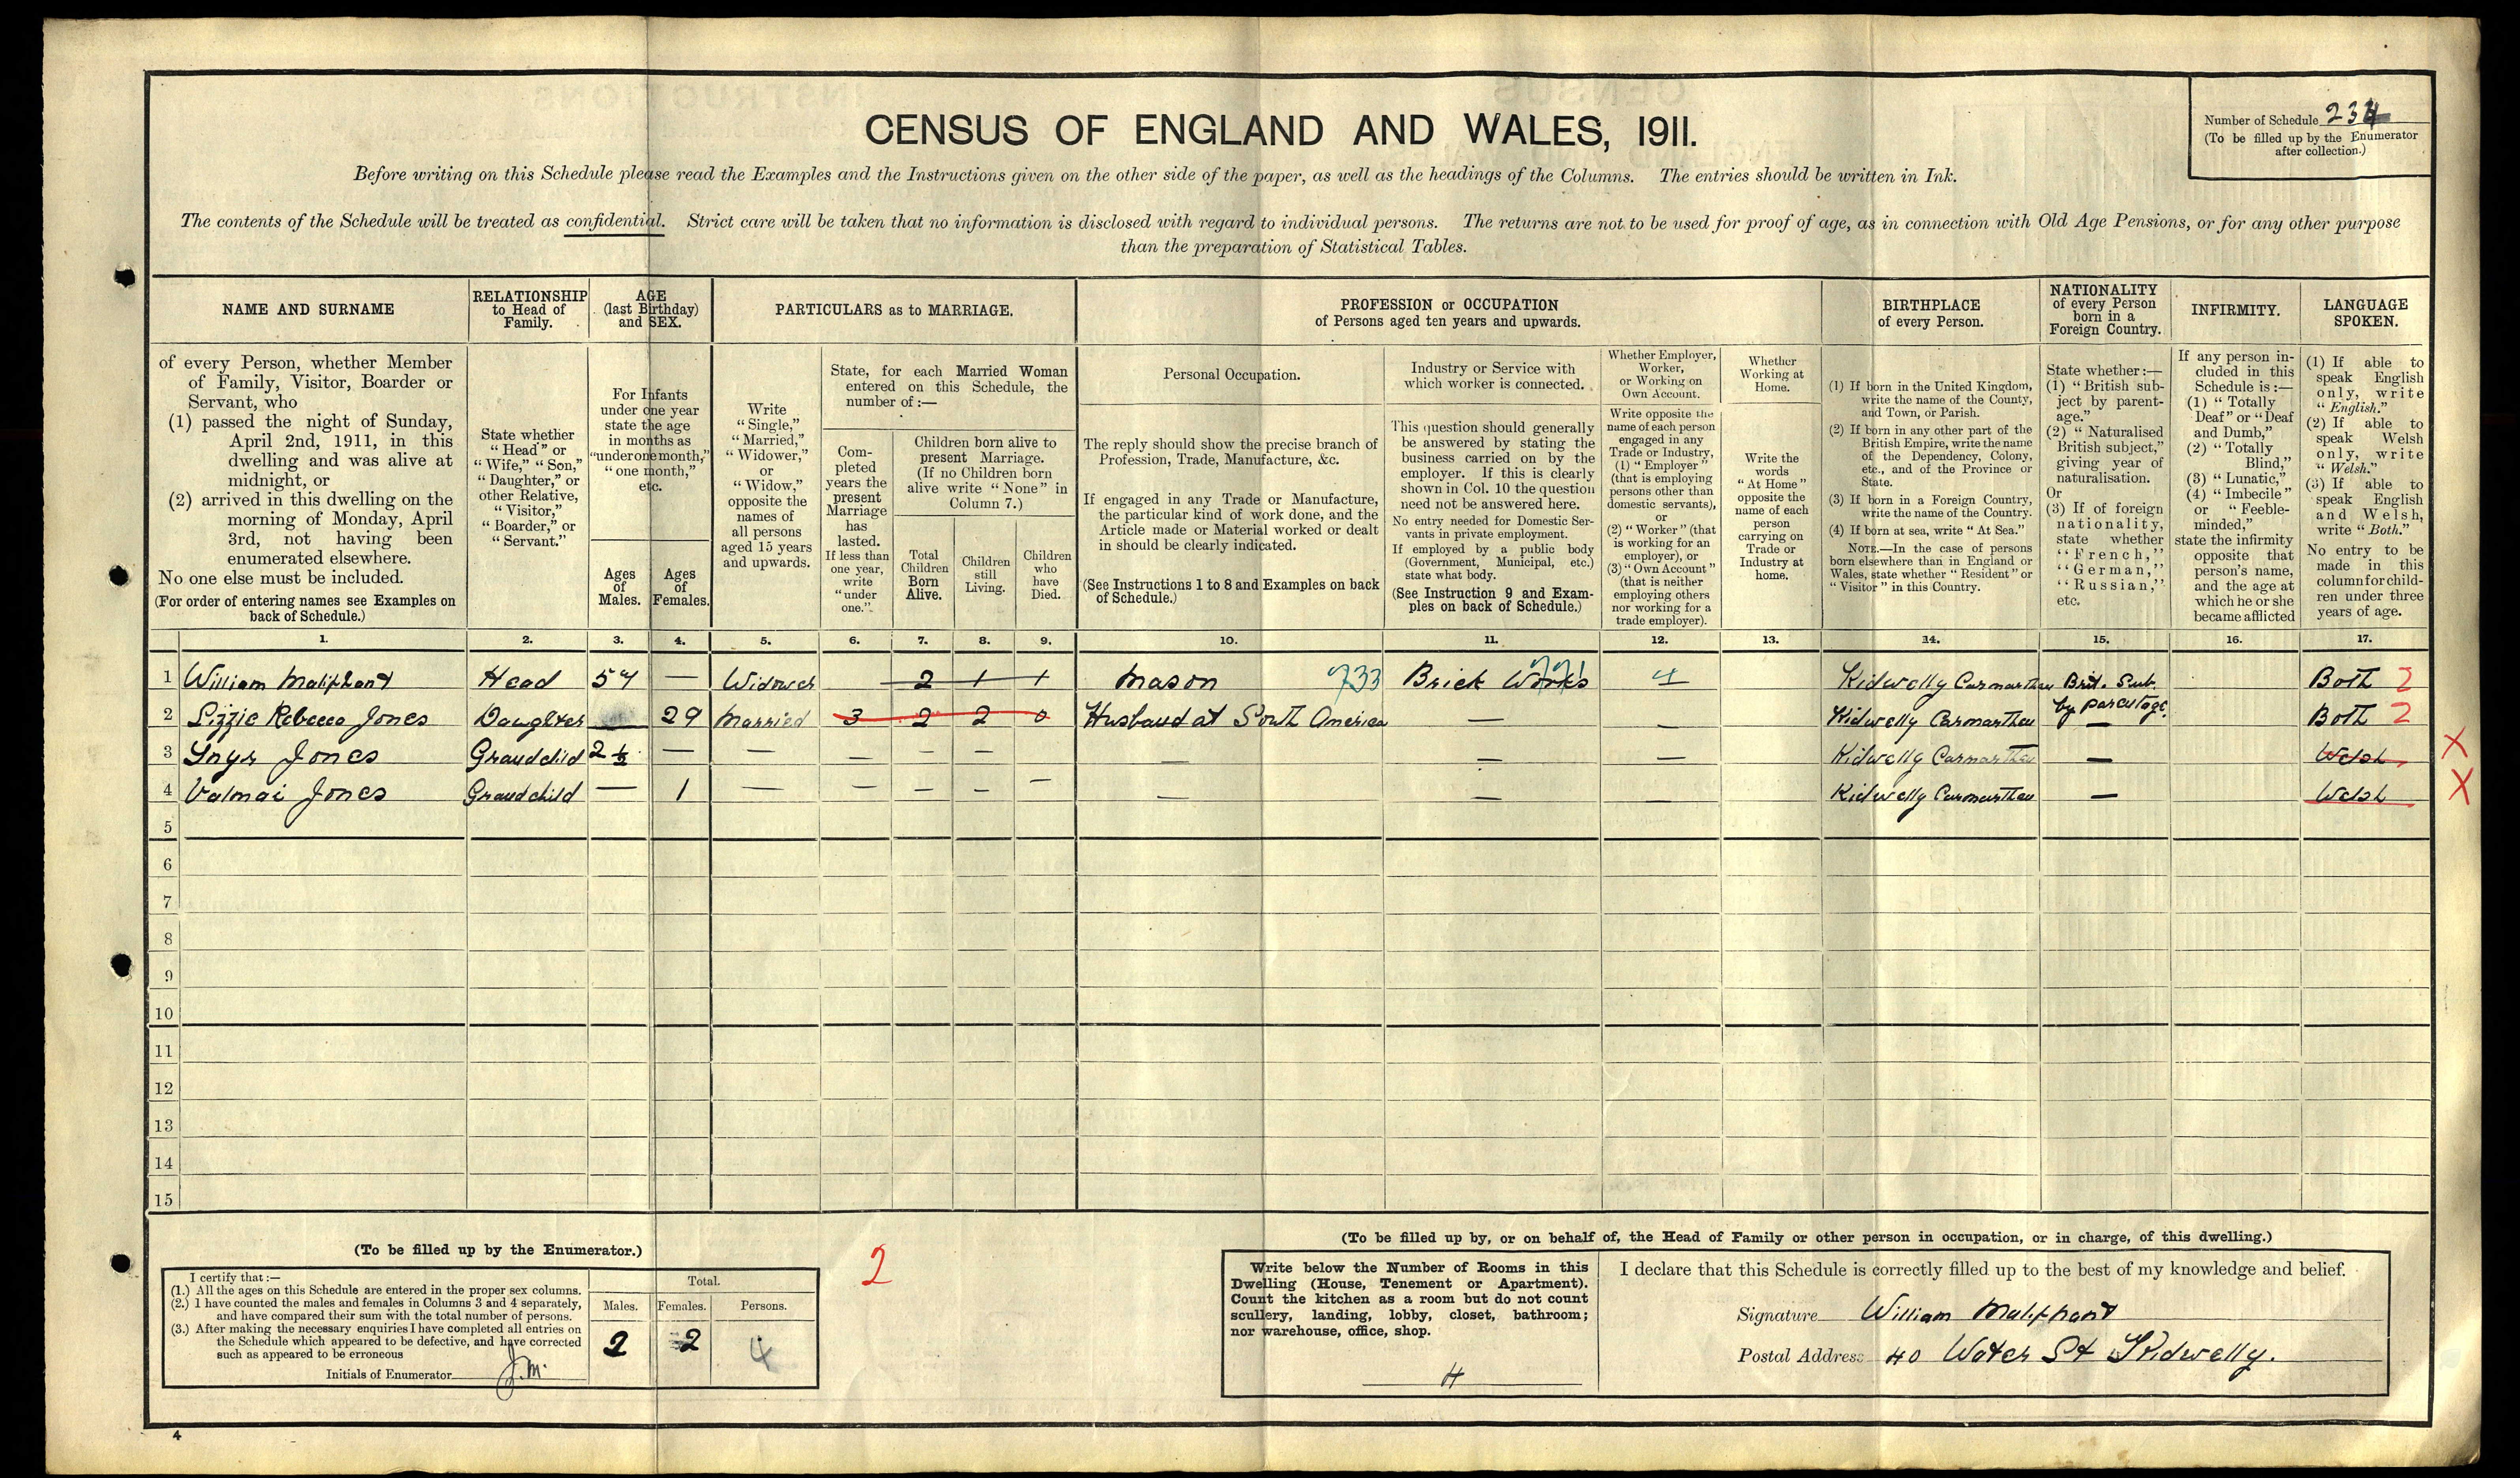 CENSUS OF ENGLAND AND WALES, 1911.
Number of Schedule
(To be filled up by the Enumerator
after collection.)
Before writing on this Schedule please read the Examples and the Instructions given on the other side of the paper, as well as the headings of the Columns. The entries should be written in Ink.
The contents of the Schedule will be treated as confidential. Strict care will be taken that no information is disclosed with regard to individual persons. The returns are not to be used for proof of age, as in connection with Old Age Pensions, or for any other purpose
than the preparation of Statistical Tables.
NAME AND SURNAME
RELATIONSHIP
to Head of
Family.
AGE
(last Birthday)
and SEX.
PARTICULARS as to MARRIAGE.
PROFESSION or OCCUPATION
of Persons aged ten years and upwards.
BIRTHPLACE
of every Person.
NATIONALITY
of every Person
born in a
Foreign Country.
INFIRMITY.
LANGUAGE
SPOKEN.
of every Person, whether Member
of Family, Visitor, Boarder or
Servant, who
(1) passed the night of Sunday,
April 2nd, 1911, in this
dwelling and was alive at
midnight, or
(2) arrived in this dwelling on the
morning of Monday, April
3rd, not having been
enumerated elsewhere.
No one else must be included.
(For order of entering names see Examples on
back of Schedule.)
State whether
"Head" or
"Wife," "Son,"
"Daughter," or
other Relative,
"Visitor,"
"Boarder," or
"Servant."
For Infants
under one year
state the age
in months as
"under one month,"
"one month,"
etc.
Ages
of
Males.
Ages
of
Females.
Write
"Single,"
"Married,"
"Widower,"
or
"Widow,"
opposite the
names of
all persons
aged 15 years
and upwards.
State, for each Married Woman
entered on this Schedule, the
number of :—
Com-
pleted
years the
present
Marriage
has
lasted.
If less than
one year,
write
"under
one."
Children born alive to
present Marriage.
(If no Children born
alive write "None" in
Column 7.)
Total
Children
Born
Alive.
Children
still
Living.
Children
who
have
Died.
Personal Occupation.
The reply should show the precise branch of
Profession, Trade, Manufacture, &c.
If engaged in any Trade or Manufacture,
the particular kind of work done, and the
Article made or Material worked or dealt
in should be clearly indicated.
(See Instructions 1 to 8 and Examples on back
of Schedule.)
Industry or Service with
which worker is connected.
This question should generally
be answered by stating the
business carried on by the
employer. If this is clearly
shown in Col. 10 the question
need not be answered here.
No entry needed for Domestic Ser-
vants in private employment.
If employed by a public body
(Government, Municipal, etc.)
state what body.
(See Instruction 9 and Exam-
ples on back of Schedule.)
Whether Employer,
Worker,
or Working on
Own Account.
Write opposite the
name of each person
engaged in any
Trade or Industry,
(1) "Employer"
(that is employing
persons other than
domestic servants),
or
(2) "Worker" (that
is working for an
employer), or
(3) "Own Account"
(that is neither
employing others
nor working for a
trade employer).
Whether
Working at
Home.
Write the
words
"At Home"
opposite the
name of each
person
carrying on
Trade or
Industry at
home.
(1) If born in the United Kingdom,
write the name of the County,
and Town, or Parish.
(2) If born in any other part of the
British Empire, write the name
of the Dependency, Colony,
etc., and of the Province or
State.
(3) If born in a Foreign Country,
write the name of the Country.
(4) If born at sea, write "At Sea."
NOTE.—In the case of persons
born elsewhere than in England or
Wales, state whether "Resident" or
"Visitor" in this Country.
State whether :—
(1) "British sub-
ject by parent-
age."
(2) "Naturalised
British subject,"
giving year of
naturalisation.
Or
(3) If of foreign
nationality,
state whether
"French,"
"German,"
"Russian,"
etc.
If any person in-
cluded in this
Schedule is :—
(1) "Totally
Deaf" or "Deaf
and Dumb,"
(2) "Totally
Blind,"
(3) "Lunatic,"
(4) "Imbecile"
or "Feeble-
minded,"
state the infirmity
opposite that
person's name,
and the age at
which he or she
became afflicted
(1) If able to
speak English
only, write
"English."
(2) If able to
speak Welsh
only, write
"Welsh."
(3) If able to
speak English
and Welsh,
write "Both."
No entry to be
made in this
column for child-
ren under three
years of age.
1. 2. 3. 4. 5. 6. 7. 8. 9. 10. 11. 12. 13. 14. 15. 16. 17.
1 William Maliphant Head 57 — Widower 2 1 1 Mason 733 Brick Works 4 Kidwelly Carmarthen Brit. Sub. Both 2
by parentage
2 Lizzie Rebecca Jones Daughter 29 Married 3 2 2 0 Husband at South America — — Kidwelly Carmarthen — Both 2
3 Jones Grandchild 2½ — — — — — — — — Kidwelly Carmarthen — Welsh X
4 Valmai Jones Grandchild — 1 — — — — — — — — Kidwelly Carmarthen — Welsh X
5
6
7
8
9
10
11
12
13
14
15
(To be filled up by the Enumerator.)
I certify that :—
(1.) All the ages on this Schedule are entered in the proper sex columns.
(2.) I have counted the males and females in Columns 3 and 4 separately,
and have compared their sum with the total number of persons.
(3.) After making the necessary enquiries I have completed all entries on
the Schedule which appeared to be defective, and have corrected
such as appeared to be erroneous
Initials of Enumerator J.M.
Total.
Males. Females. Persons.
2 2 4
2
(To be filled up by, or on behalf of, the Head of Family or other person in occupation, or in charge, of this dwelling.)
Write below the Number of Rooms in this
Dwelling (House, Tenement or Apartment).
Count the kitchen as a room but do not count
scullery, landing, lobby, closet, bathroom;
nor warehouse, office, shop.
4
I declare that this Schedule is correctly filled up to the best of my knowledge and belief.
Signature William Maliphant
Postal Address 40 Water St Kidwelly.
4